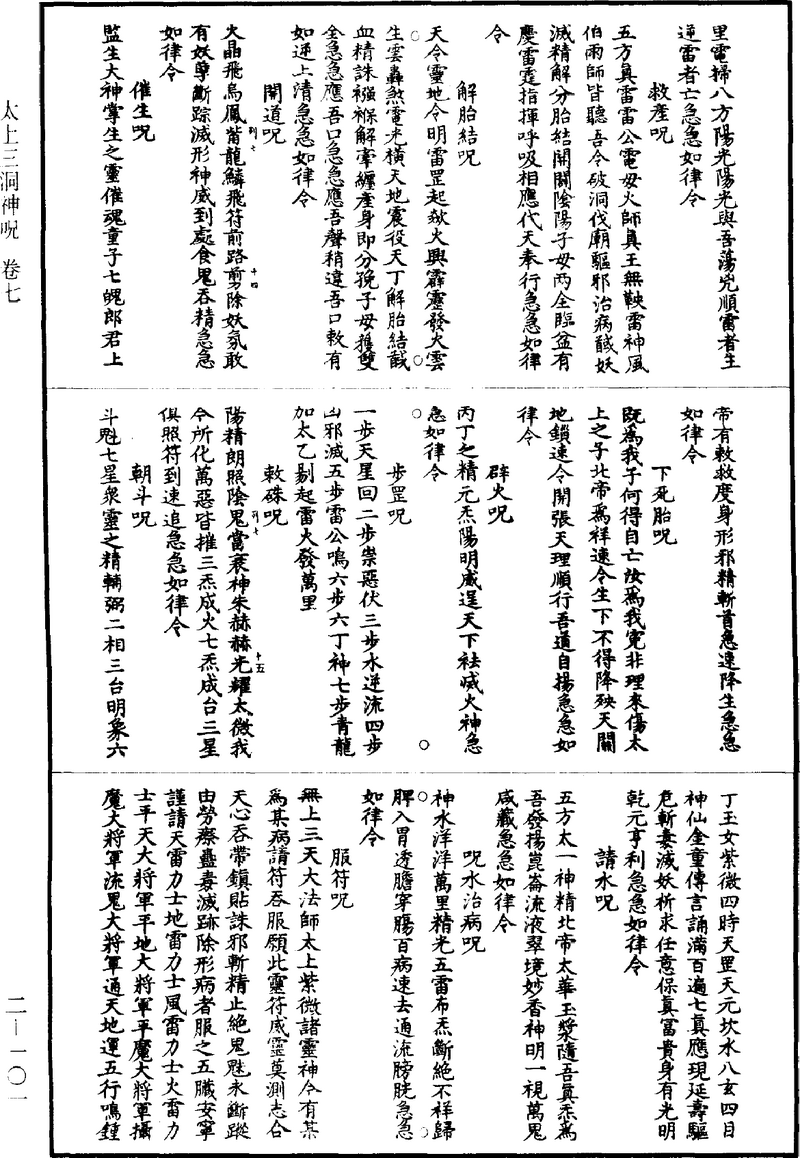 太上三洞神呪　卷七
二－一〇一
里電掃八方陽光陽光與吾蕩兇順雷者生
逆雷者亡急急如律令
救產呪
五方真雷雷公電母火師真王無鞅雷神風
伯雨師皆聽吾令破洞伐廟驅邪治病馘妖
滅精解分胎結開關陰陽子母兩全臨盆有
慶雷霆指揮呼吸相應代天奉行急急如律
令
解胎結呪
天令靈地令明雷罡起熒火興霹靂發火雲
生雲轟煞電光橫天地震役天丁解胎結馘
血精誅襁褓解牽纏產身即分娩子母獲雙
全急急應吾口急急應吾聲稍違吾口敕有
如逆上清急急如律令
開道呪
火晶飛烏鳳觜龍鱗飛符前路剪除妖氛敢
有妖孽斷踪滅形神威到處食鬼吞精急急
如律令
催生呪
監生大神掌生之靈催魂童子七魄郎君上
帝有敕救度身形邪精斬首急速降生急急
如律令
下死胎呪
既為我子何得自亡汝為我冤非理來傷太
上之子北帝為祥速令生下不得降殃天關
地鎖速令開張天理順行吾道自揚急急如
律令
辟火呪
丙丁之精元炁陽明威逞天下祛滅火神急
急如律令
步罡呪
一步天星回二步崇惡伏三步水逆流四步
凶邪滅五步雷公鳴六步六丁神七步青龍
加太乙剔起雷火發萬里
敕硃呪
陽精朗照陰鬼當衰神朱赫赫光耀太微我
令所化萬惡皆摧三炁成火七炁成台三星
俱照符到速追急急如律令
朝斗呪
斗魁七星眾靈之精輔弼二相三台明象六
丁玉女紫微四時天罡天元坎水八玄四目
神仙金童傳言誦滿百遍七真應現延壽驅
危斬妻滅妖祈求任意保真富貴身有光明
乾元亨利急急如律令
請水呪
五方太一神精北帝太華玉漿隨吾真炁為
吾發揚崑崙流液翠境妙香神明一視萬鬼
咸藏急急如律令
呪水治病呪
神水洋洋萬里精光五雷布炁斷絕不祥歸
脾入胃透膽穿腸百病速去通流膀胱急急
如律令
服符呪
無上三天大法師太上紫微諸靈神今有某
為某病請符吞服願此靈符威靈莫測志合
天心吞帶鎮貼誅邪斬精止絕鬼魅永斷蹤
由勞瘵蠱毒滅跡除形病者服之五臟安寧
謹請天雷力士地雷力士風雷力士火雷力
士平天大將軍平地大將軍平魔大將軍攝
魔大將軍流鬼大將軍通天地運五行鳴鍾